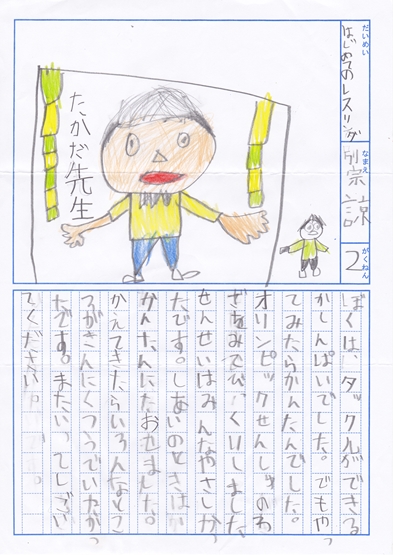 だいめい
はじめてのレスリング
なまえ
宗 諒
がくねん
2
たかだ先生
ぼくは、タックルができる
かしんぱいでした。でもやっ
てみたらかんたんでした。
オリンピックせんしゅのわ
ざをみてびっくりしました
せんせいはみんなやさしかっ
たです。しあいのときは
かんたんにたおせました。
かえてきたらいろんなとこ
ろがきんにくつうでいたかっ
たです。またいって
てください。